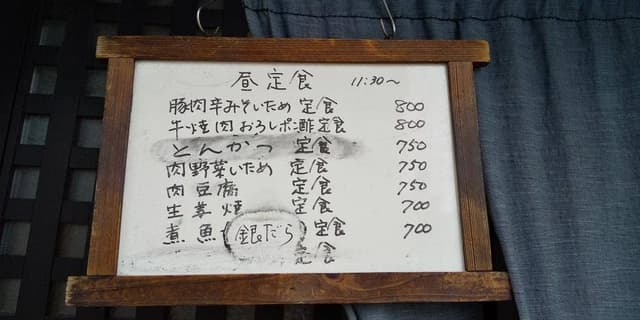 昼定食 11:30～
豚肉辛みそいため 定食 800
牛焼肉おろしポン酢定食 800
とんかつ 定食 750
肉野菜いため 定食 750
肉豆腐 定食 750
生姜焼 定食 700
煮魚(銀だら) 定食 700
定食